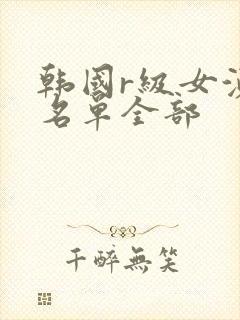 韩国r级女演
名单全部
千醉無笑